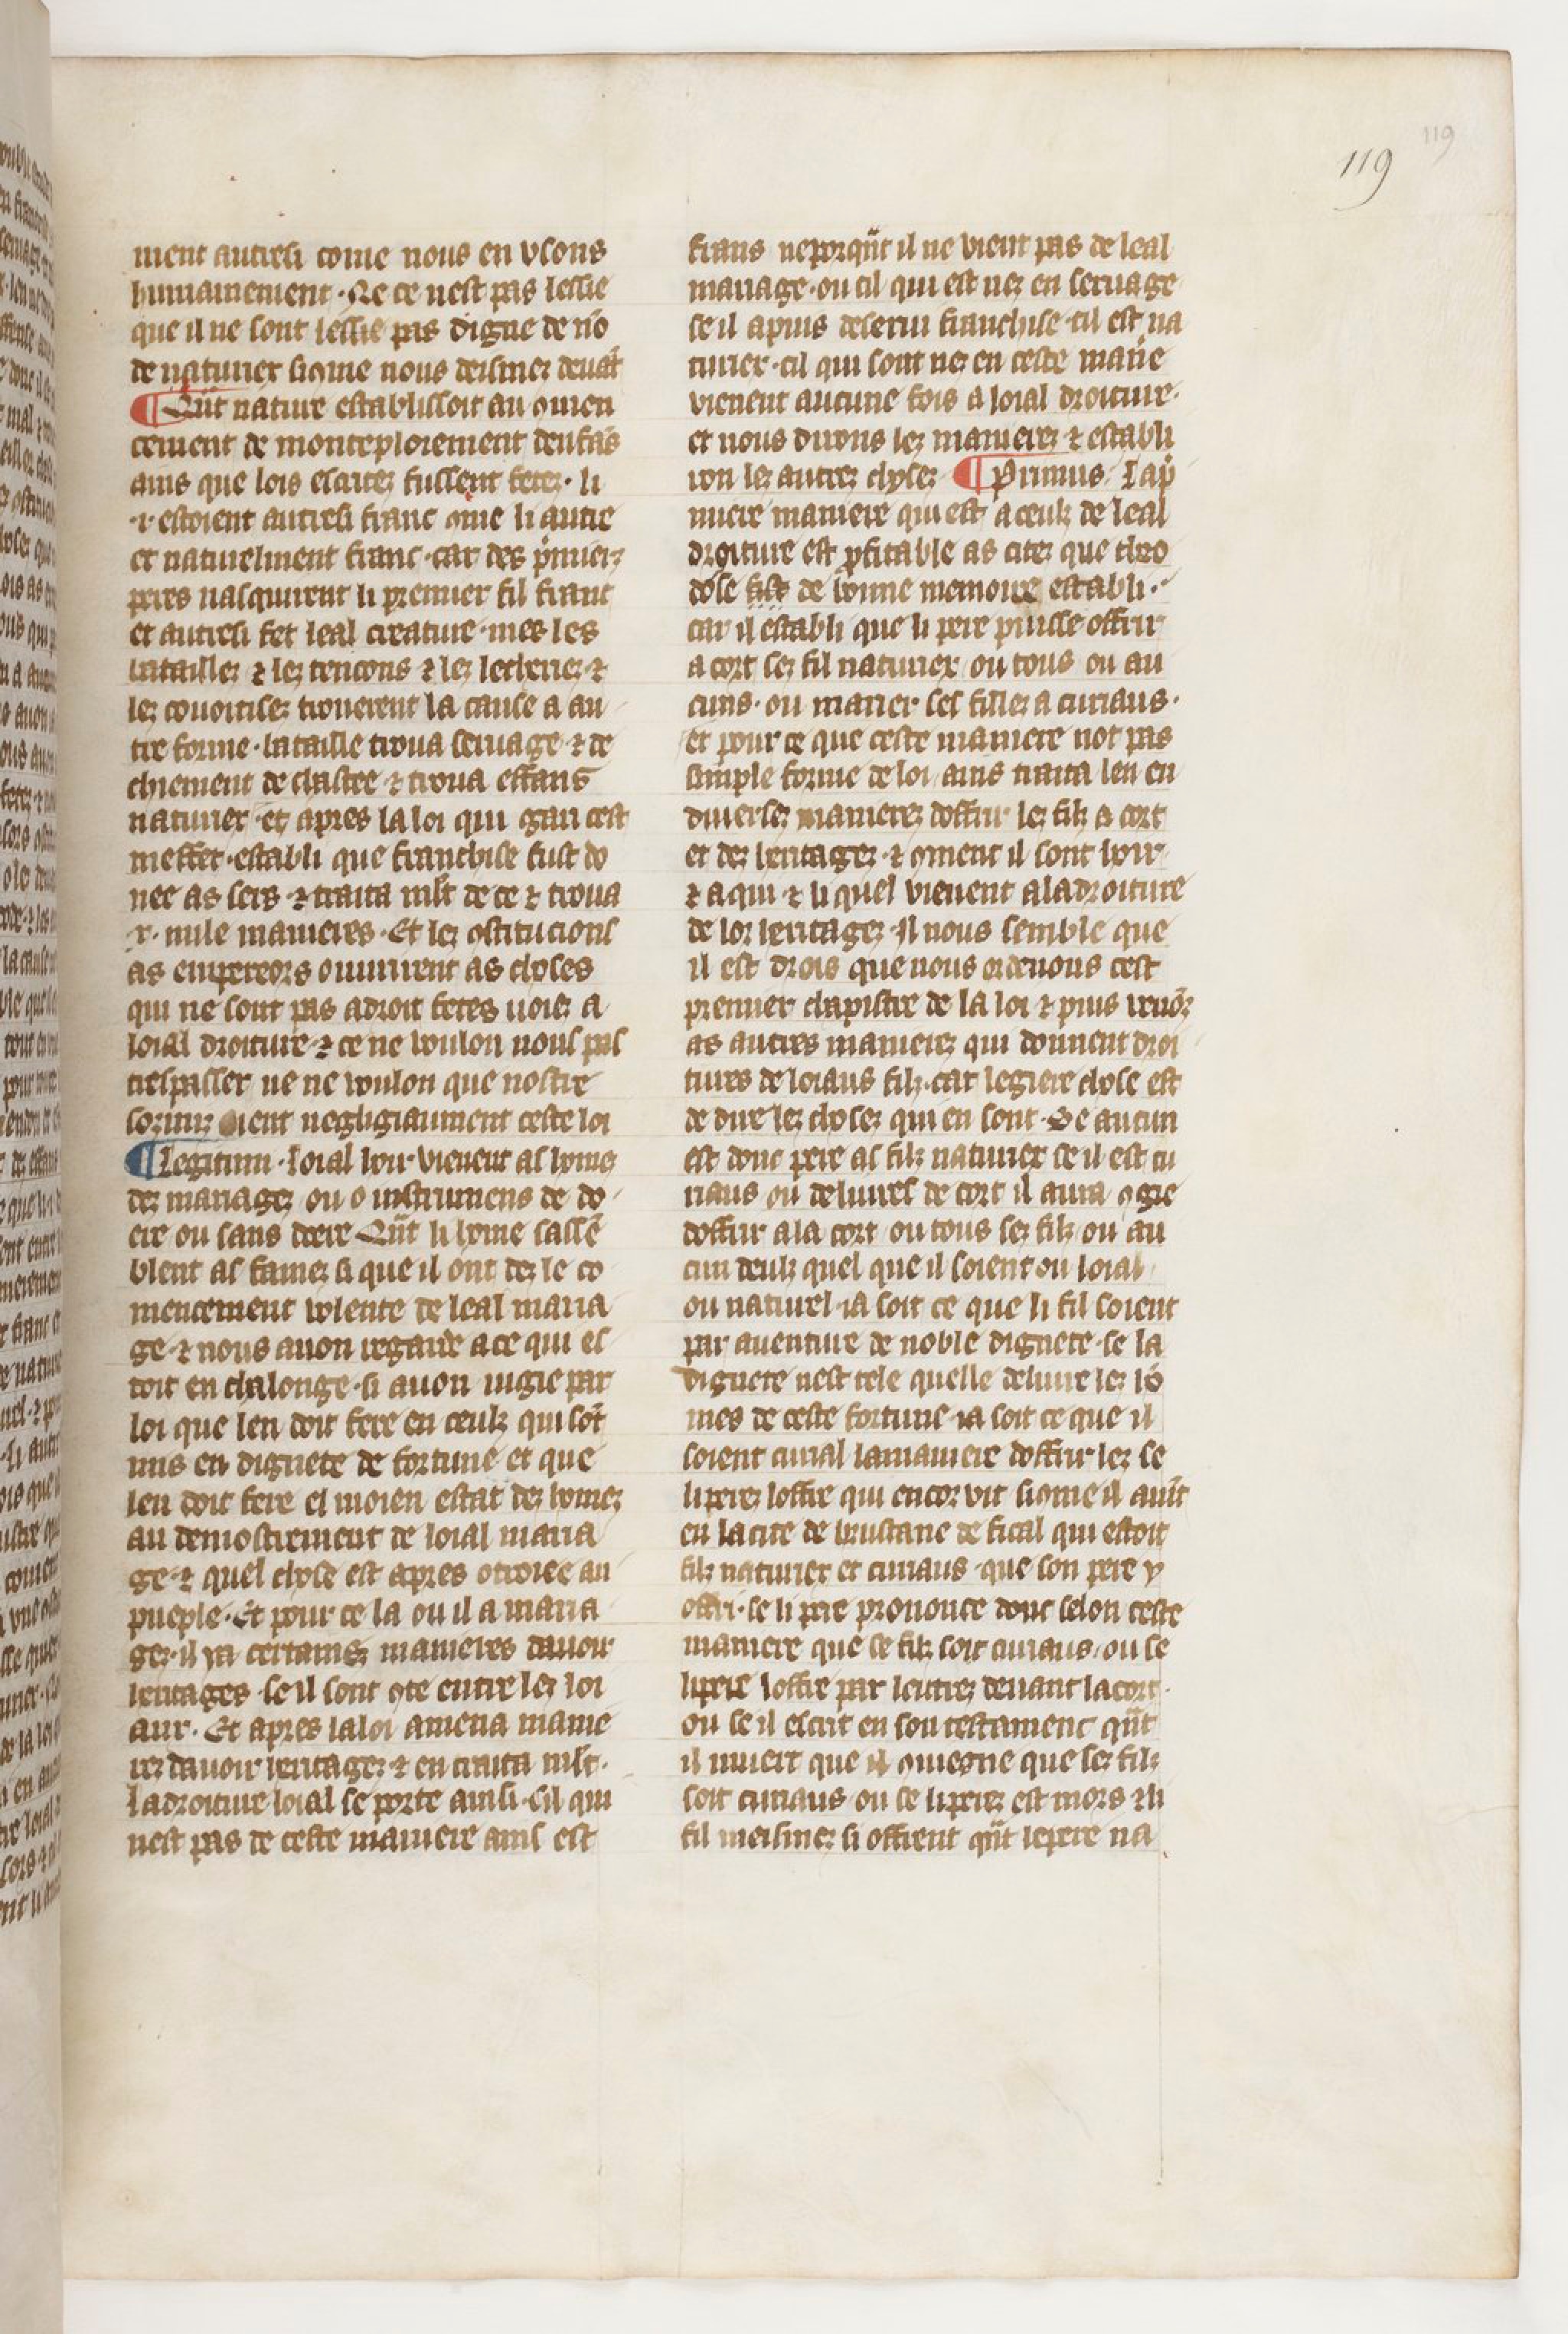 119
119
ment autresi come nous en usons
humainement · Ne ce nest pas lessie
que il ne sont lessie pas digne de nō
de naturex si ꝯme nous deismez deuāt
¶ Qn̄t nature establissoit au ꝯmen
cement de monteploiement denfās
ains que lois escritez fussent fetez · li
·i· estoient autresi franc ꝯme li autre
et naturelment franc · car des p̄miers
peres nasquirent li premier fil franc
et autresi fet leal creature · mes les
bataillez ⁊ lez tencons ⁊ lez lecheriez ⁊
lez couoitisez trouerent la cause a au
tre forme · bataille troua seruage ⁊ de
chiement de chastee ⁊ troua effans
naturiex et apres la loi qui gari cest
meffet · establi que franchise fust do
nee as sers · ⁊ traita ml̄t de ce ⁊ troua
·x· mile manieres · Et lez ꝯstitucions
as empereors ouurirent as choses
qui ne sont pas adroit fetes uoiez a
loial droiture · ⁊ ce ne uoulon nous pas
trespasser ne ne uoulon que nostre
soient negligiaument ceste loi
¶ Legitim · Loial hoir vienent as homez
dez mariagez ou o instrumens de do
ere ou sans doere Qn̄t li home sassē
blent as famez si que il ont dez le co
mencement uolente de leal maria
ge · ⁊ nous auon regarde a ce qui es
toit en chalonge · si auon iugie par
loi que len doit fere en ceulz qui sōt
mis en dignete de fortune et que
len doit fere el moien estat dez homez
au demostrement de loial maria
ge · ⁊ quel chose est apres otroiee au
pueple · Et pour ce la ou il a maria
gez · il ya certainez manieres dauoir
heritages · se il sont ꝯte entre lez loi
aux · Et apres la loi amena manie
rez dauoir heritagez · ⁊ en traita ml̄t ·
La droiture loial se porte ainsi · Cil qui
nest pas de ceste maniere ains est
frans neporqn̄t il ne vient pas de leal
mariage · ou cil qui est nez en seruage
se il a puis deserui franchise · cil est na
turiex · cil qui sont nez en ceste manie
vienent aucune fois a loial droiture ·
et nous dirons lez manierez ⁊ establi
ron lez autrez chosez ¶ Primus · La p̄
miere maniere qui est a ceulz de leal
droiture est ꝓfitable as citez que theo
dose fist de bonne memoire establi ·
car il establi que li pere puisse offrir
a cort sez fil naturiex ou tous ou au
cuns · ou marier ses fillez a curiaus ·
et pour ce que ceste maniere not pas
simple forme de loi ains traita len en
diuersez manierez doffrir lez filz a cort
et dez heritagez · ⁊ ꝯment il sont hoir
⁊ a qui ⁊ li quel vienent a la droiture
de lor heritagez · Il nous semble que
il est drois que nous ordenons cest
premier chapistre de la loi ⁊ puis uenōz
as autres manierez qui donnent droi
tures de loiaus filz · car legiere chose est
de dire lez chosez qui en sont · Se aucun
est donc pere as filz naturiex se il est cu
riaus ou deliures de cort il aura ꝯgie
doffrir a la cort ou tous sez filz ou au
cun deulz quel que il soient ou loial
ou naturel · ia soit ce que li fil soient
par auenture de noble dignete · se la
dignete nest tele quelle deliure lez hō
mes de ceste fortune · ia soit ce que il
soient curial la maniere doffrir lez se
li perez loffre qui encor vit si ꝯme il auīt
en la cite de brustane de fical qui estoit
filz naturiex et curiaus · que son pere y
offri · se li pere prononce donc selon ceste
maniere que se filz soit curiaus · ou se
li pere loffre par leitrez deuant la cort ·
ou se il escrit en son testament qn̄t
il muert que il ꝯuiegne que sez filz
soit curiaus · ou se li perez est mors ⁊ li
fil meismez si offrent qn̄t le pere na